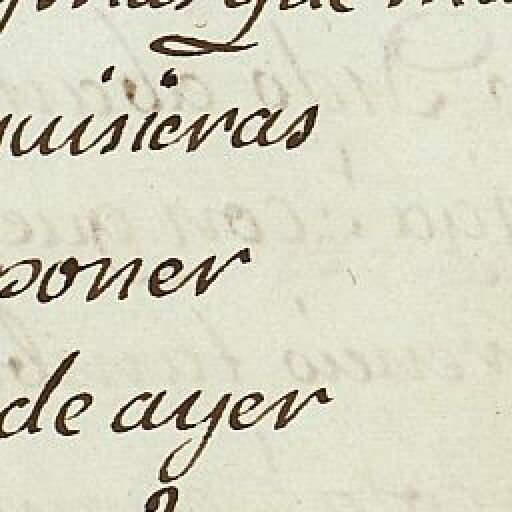 que
quisieras
poner
de ayer